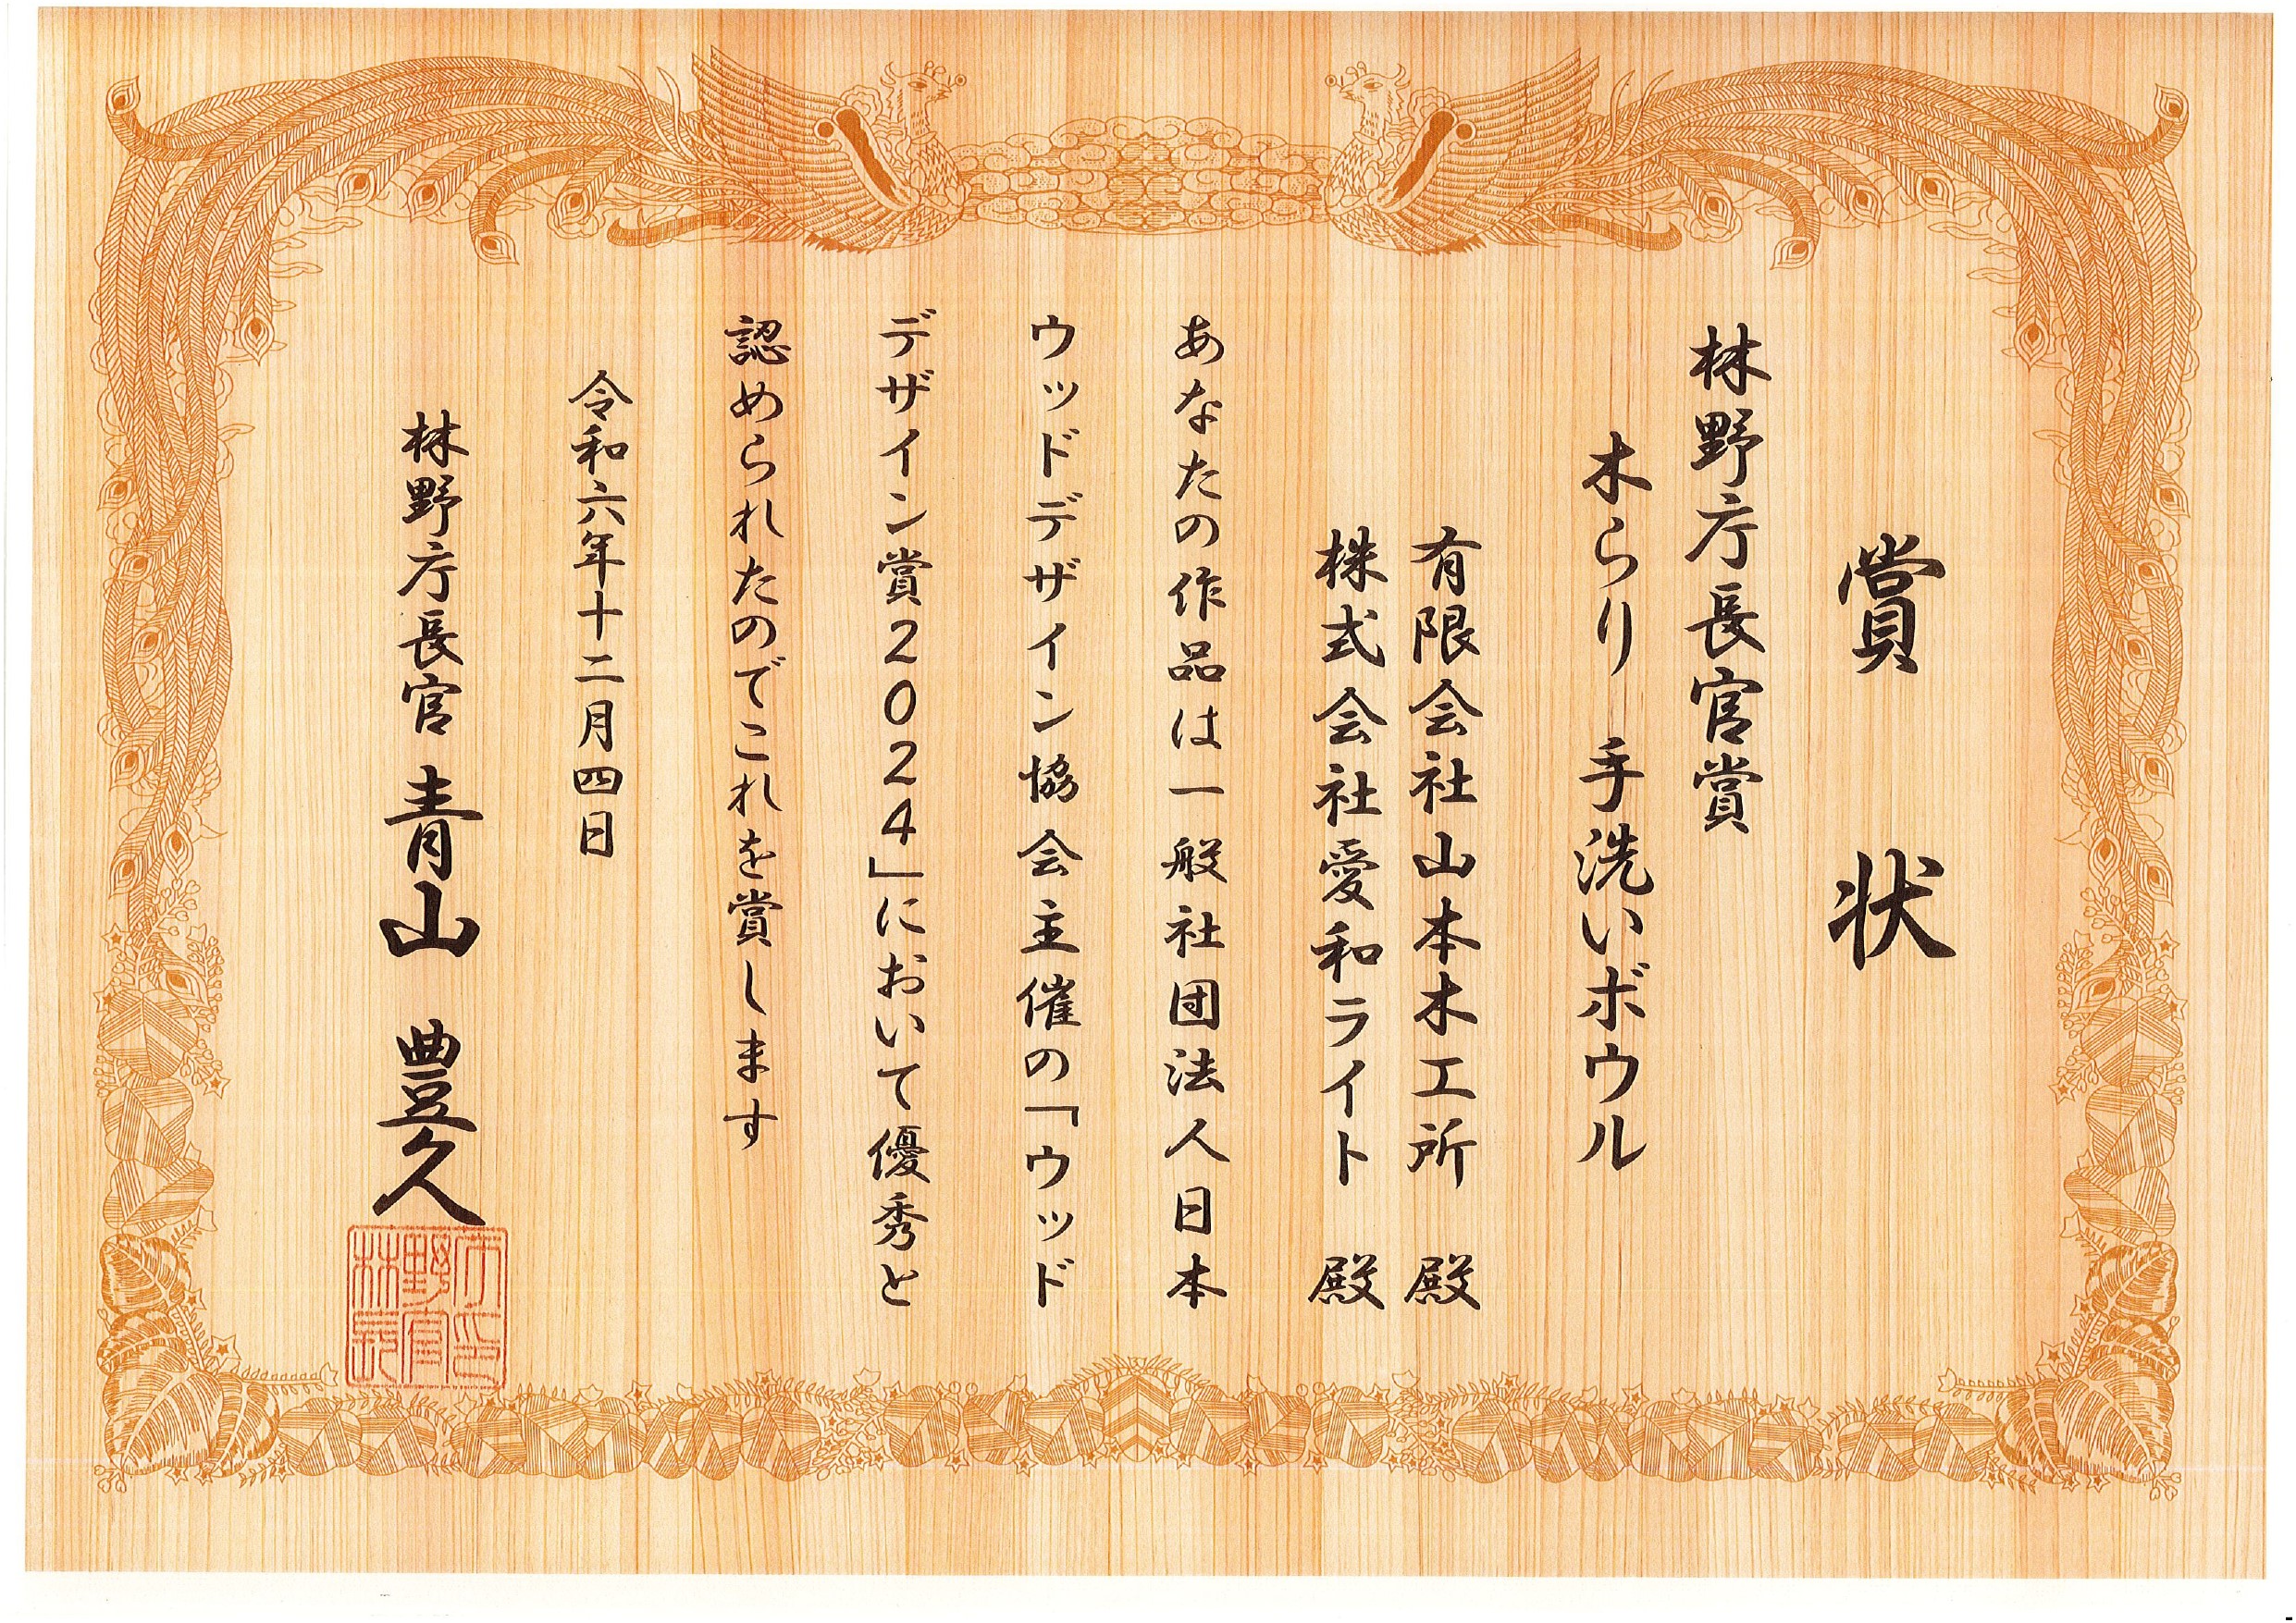 賞状
林野庁長官賞
木らり 手洗いボウル
有限会社山本木工所 殿
株式会社愛和ライト 殿
あなたの作品は一般社団法人日本
ウッドデザイン協会主催の「ウッド
デザイン賞2024」において優秀と
認められたのでこれを賞します
令和六年十二月四日
林野庁長官 青山 豊久
林野庁長官之印